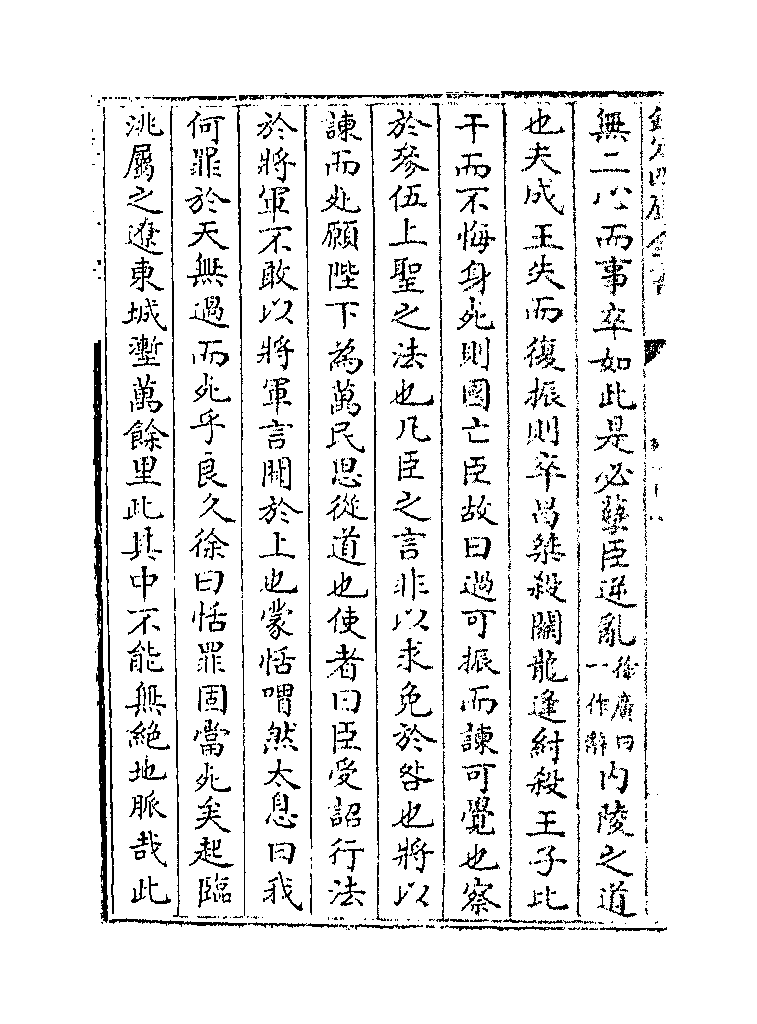 欽定四庫全書
無二心而事卒如此是必孽臣逆亂徐廣曰一作辭内陵之道
也夫成王失而復振則卒昌桀殺關龍逢紂殺王子比
干而不悔身死則國亡臣故曰過可振而諫可覺也察
於參伍上聖之法也凡臣之言非以求免於咎也將以
諫而死願陛下為萬民思從道也使者曰臣受詔行法
於將軍不敢以將軍言聞於上也蒙恬喟然太息曰我
何罪於天無過而死乎良久徐曰恬罪固當死矣起臨
洮屬之遼東城塹萬餘里此其中不能無絶地脈哉此